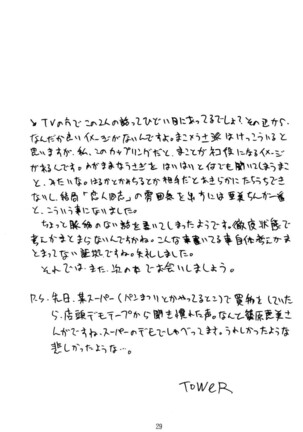 TVの方でこの2人の絡ってひどい目にあってるでしょ?その辺から、
なんだか良いイメージがないんですよ。まこ×うさ派はけっこういると
思いますが、私、このカップリングだと、まことがネコ役になるイメージ
があるんです。わがままなうさぎを はいはいと何でも聞いてしまうまこ
と、みたいな。はるかとかみちるとか相手だとあきらかにたちうちでき
ないし、結局「恋人同志」の雰囲気を出すには亜美ちゃんが一番
と、こういう事になりました。
ちょっと脈絡のない話を書いてしまったようです。(徹夜状態で
考えがまとまらないんですかね。こんな事書いてる事自体考えがま
とまってない証拠ですね。失礼しました。
それでは、また、次の本でお会いしましょう。
P.S. 先日、某スーパー(パンまつりとかやってるとこ)で買物をしていた
ら、店頭デモテープから聞き慣れた声。なんと篠原恵美さ
んがですね、スーパーのデモでしゃべってます。うれしかったような
悲しかったような…。
TOWER
29